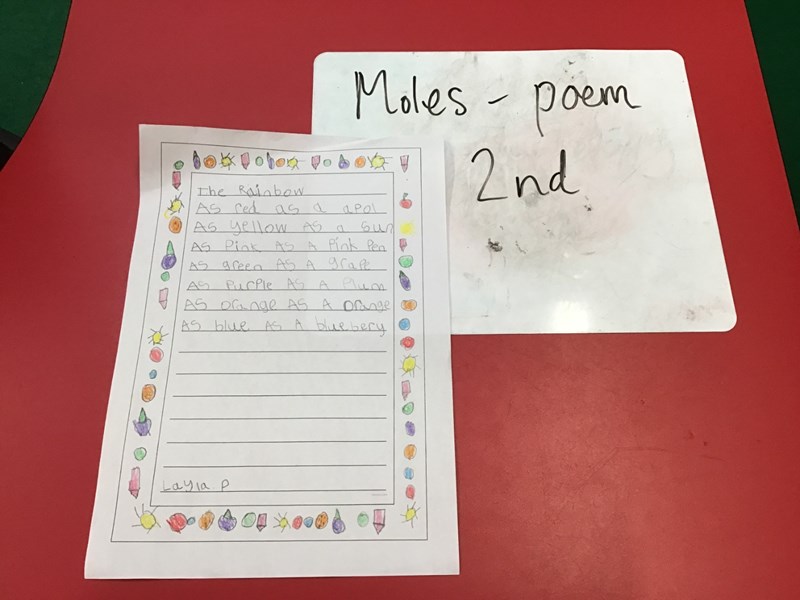 Moles - poem
2nd
The Rainbow
As red as a apol
As yellow As a sun
As Pink As A Pink Pen
As green As A grape
As Purple As A Plum
As orange As A orange
As blue As A bluebery
Layla P